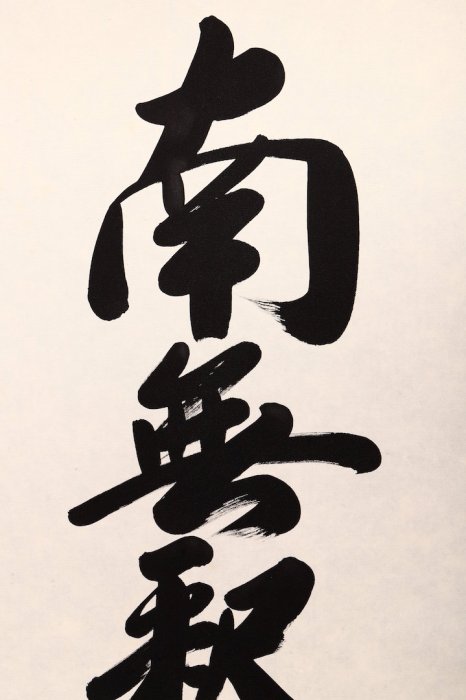 南無釈